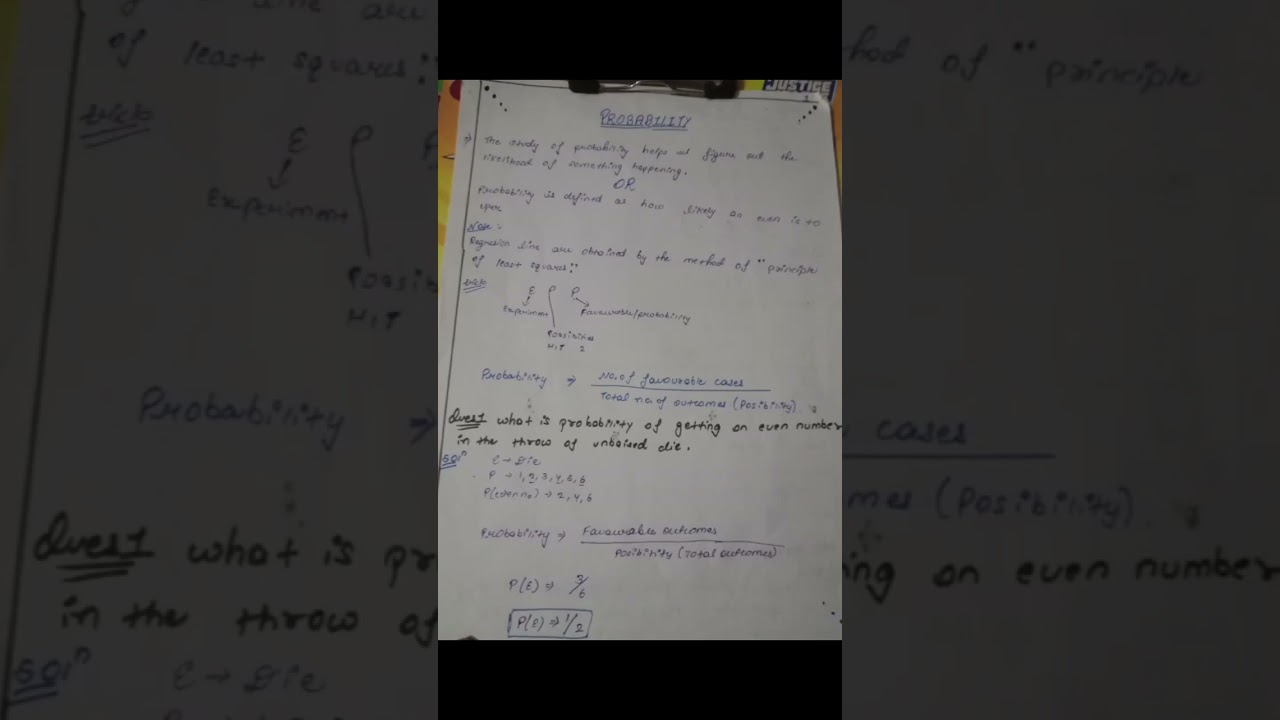 JUSTICE
1
PROBABILITY
⇒ The study of probability helps us figure out the
likelihood of something happening.
OR
Probability is defined as how likely an even is to
Note:-
Regression line are obtained by the method of "principle
of least squares"
trick
E P P
Experiment Favourable/probability
Possibilities
H,T 2
Probability ⇒ No. of favourable cases
Total no. of outcomes (Posibility)
Ques1 what is probability of getting an even number
in the throw of unbaised die.
Solⁿ E → Die
P → 1, 2, 3, 4, 5, 6
P(even no) → 2, 4, 6
Probability ⇒ Favourables outcomes
Posibility (Total outcomes)
P(E) ⇒ 3/6
P(E) ⇒ 1/2